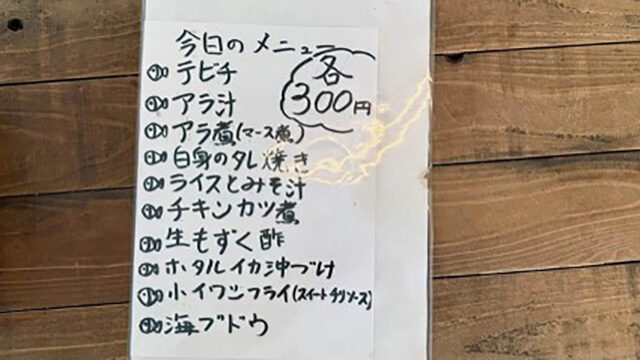 今日のメニュー
各300円
テビチ
アラ汁
アラ煮(マース煮)
白身のタレ焼き
ライスとみそ汁
チキンカツ煮
生もずく酢
ホタルイカ沖づけ
小イワシフライ(スイートチリソース)
海ブドウ